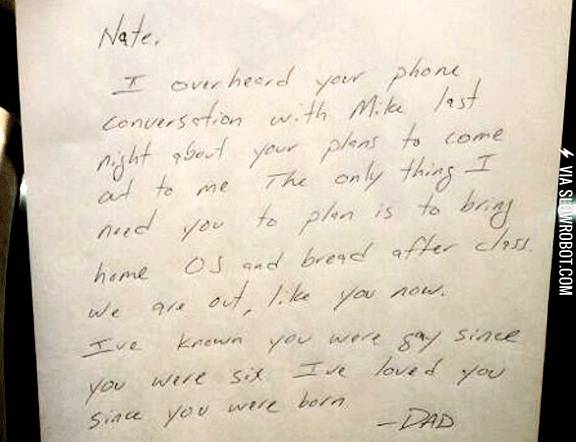 Nate,
I overheard your phone
conversation with Mike last
night about your plans to come
out to me The only thing I
need you to plan is to bring
home OJ and bread after class.
We are out, like you now.
I've known you were gay since
you were six. I've loved you
since you were born.
-DAD
VIA SLOWROBOT.COM